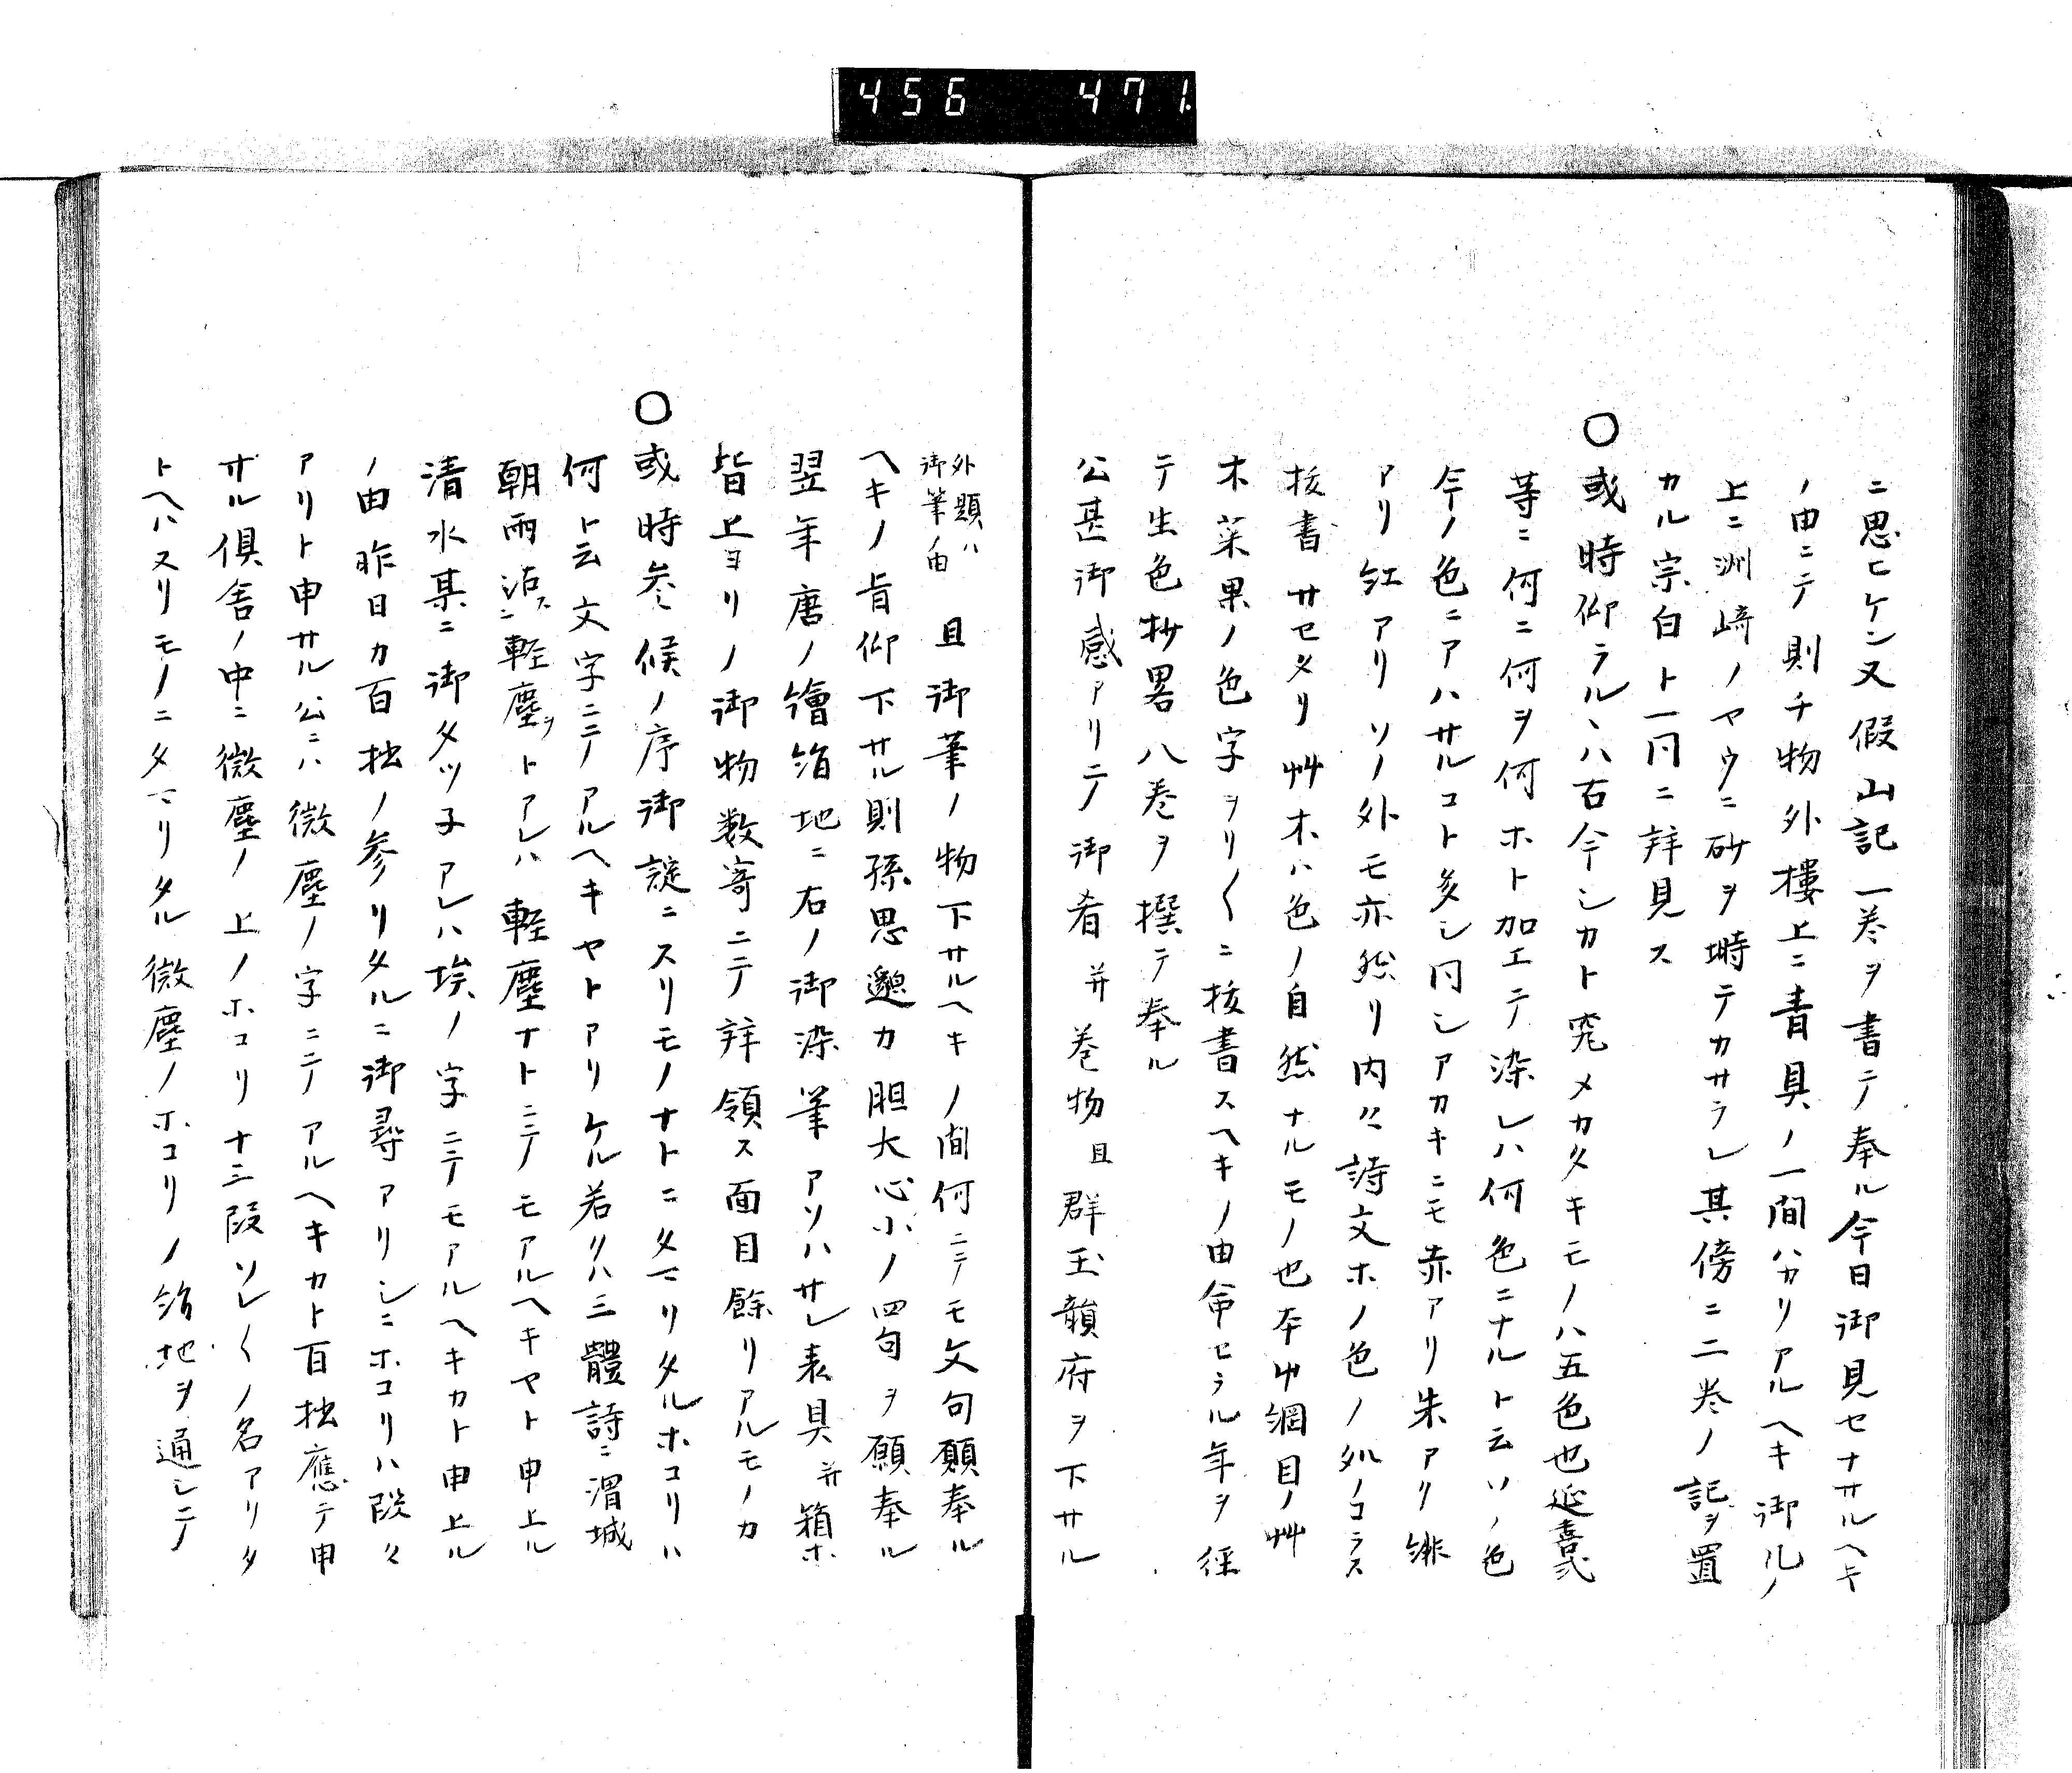 456 471.
ニ思ヒケン又假山記一巻ヲ書テ奉ル今日御見セナサルヘキ
ノ由ニテ則チ物外樓上ニ青具ノ一間ハカリアルヘキ御ル丿
上ニ洲崎ノヤウニ砂ヲ塒テカサラレ其傍ニ二巻ノ記ヲ置
カル宗白ト一同ニ拜見ス
〇或時仰ラルヽハ古今シカト究メカタキモノハ五色也延喜式
等ニ何ニ何ヲ何ホト加エテ染レハ何色ニナルト云ソノ色
今ノ色ニアハサルコト多シ同シアカキニモ赤アリ朱アリ緋
アリ紅アリソノ外モ亦然リ内々詩文ホノ色ノ処ノコラス
抜書サセタリ艸木ハ色ノ自然ナルモノ也本艸綱目ノ艸
木菜果ノ色字ヲリ〱ニ抜書スヘキノ由命セラル年ヲ径
テ生色抄畧八巻ヲ撰テ奉ル
公甚御感アリテ御肴并巻物且群玉韻府ヲ下サル
外題ハ
御筆ノ由
且御筆ノ物下サルヘキノ間何ニテモ文句願奉ル
ヘキノ旨仰下サル則孫思邈カ胆大心小ノ四句ヲ願奉ル
翌年唐ノ繪絹地ニ右ノ御染筆アソハサレ表具并箱ホ
皆上ヨリノ御物数寄ニテ拜領ス面目餘リアルモノカ
〇或時参候ノ序御諚ニスリモノナトニタマリタルホコリハ
何ト云文字ニテアルヘキヤトアリケル若クハ三體詩ニ渭城
朝雨浥ス二軽塵ヲ一トアレハ軽塵ナトニテモアルヘキヤト申上ル
清水某ニ御タツ子アレハ埃ノ字ニテモアルヘキカト申上ル
ノ由昨日カ百拙ノ参リタルニ御尋アリシニホコリハ段々
アリト申サル公ニハ微塵ノ字ニテアルヘキカト百拙應テ申
サル倶舎ノ中ニ微塵ノ上ノホコリ十三段ソレ〱ノ名アリタ
トヘハスリモノニタマリタル微塵ノホコリノ絹地ヲ通シテ